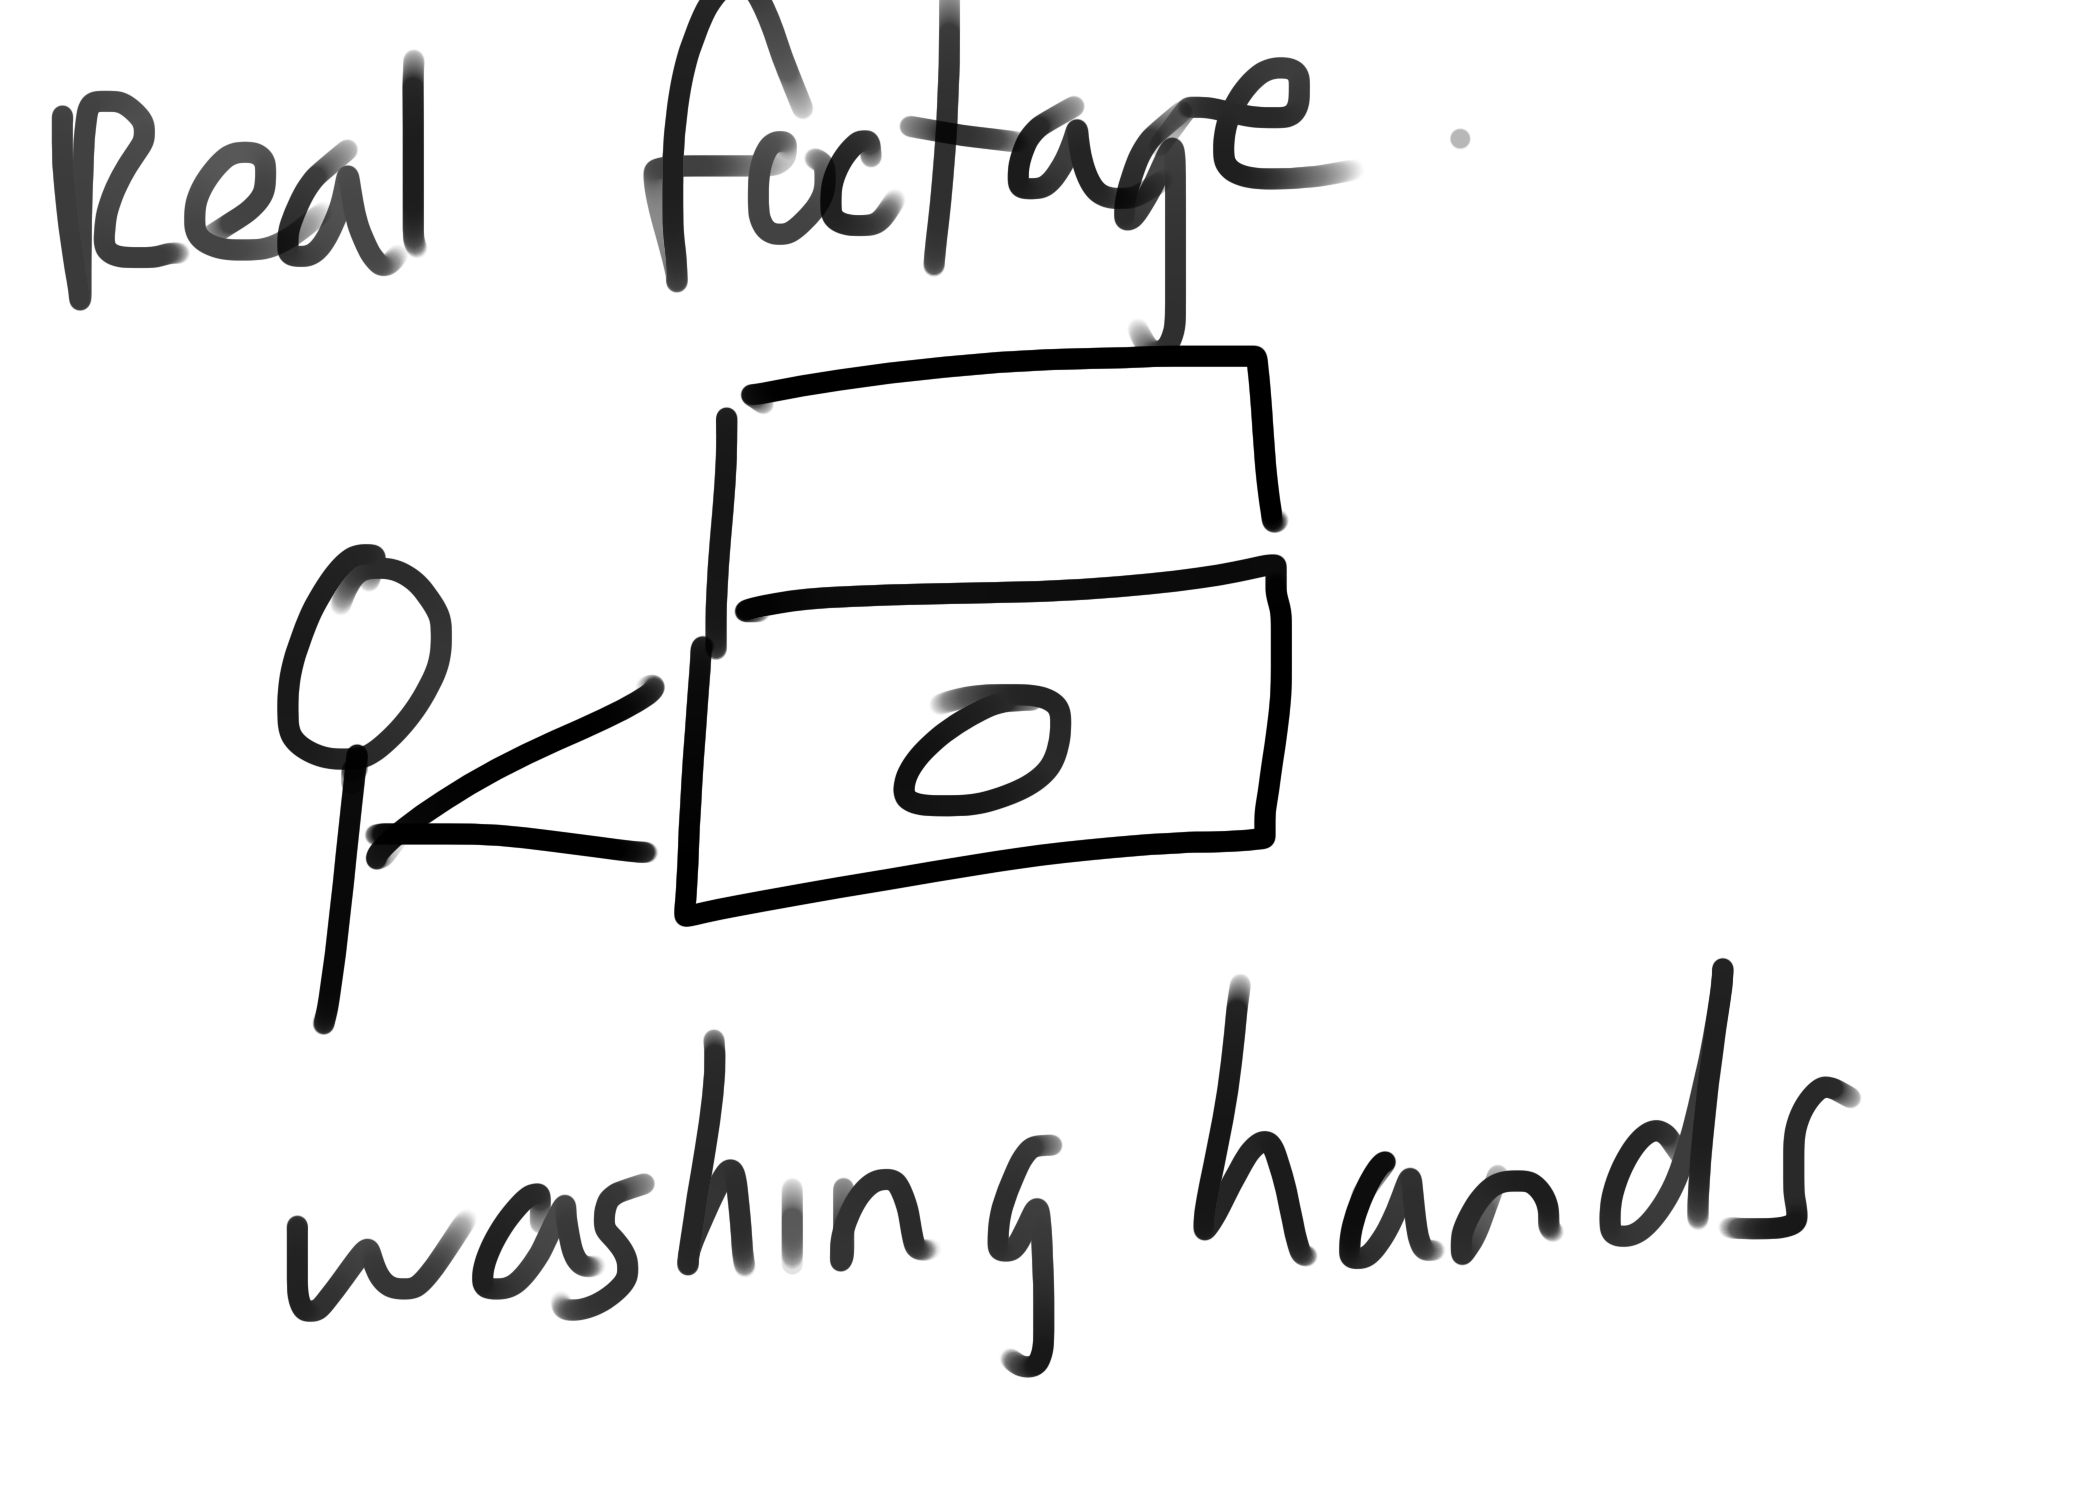 Real footage
washing hands